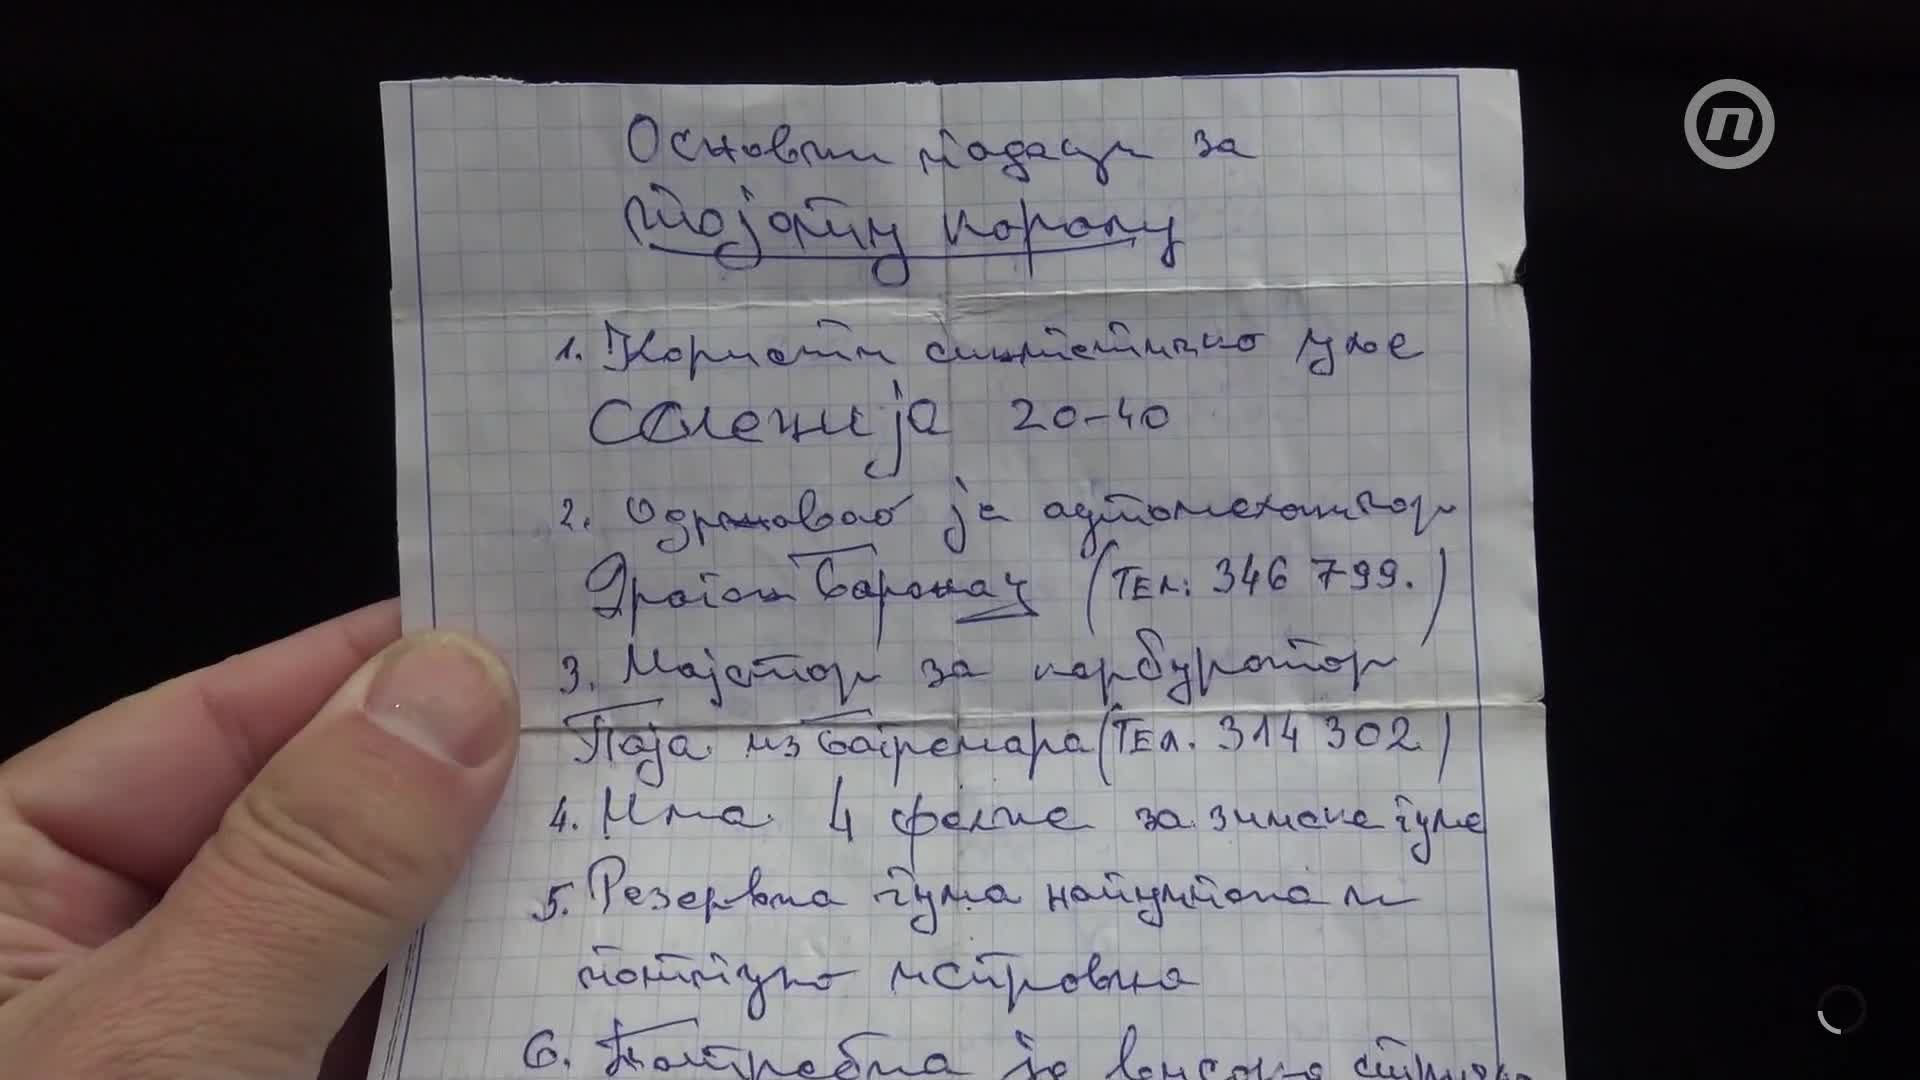 Основни подаци за
тојоту королу
1. Користи синтетичко уље
Селенија 20-40
2. Одржавао је аутомеханичар
Драган Баронач (Тел: 346 799.)
3. Мајстор за карбуратор
Паја из Багремара (Тел. 314 302)
4. Има 4 фелне за зимске гуме
5. Резервна гума напумпана и
потпуно исправна
6. Потребна је
n